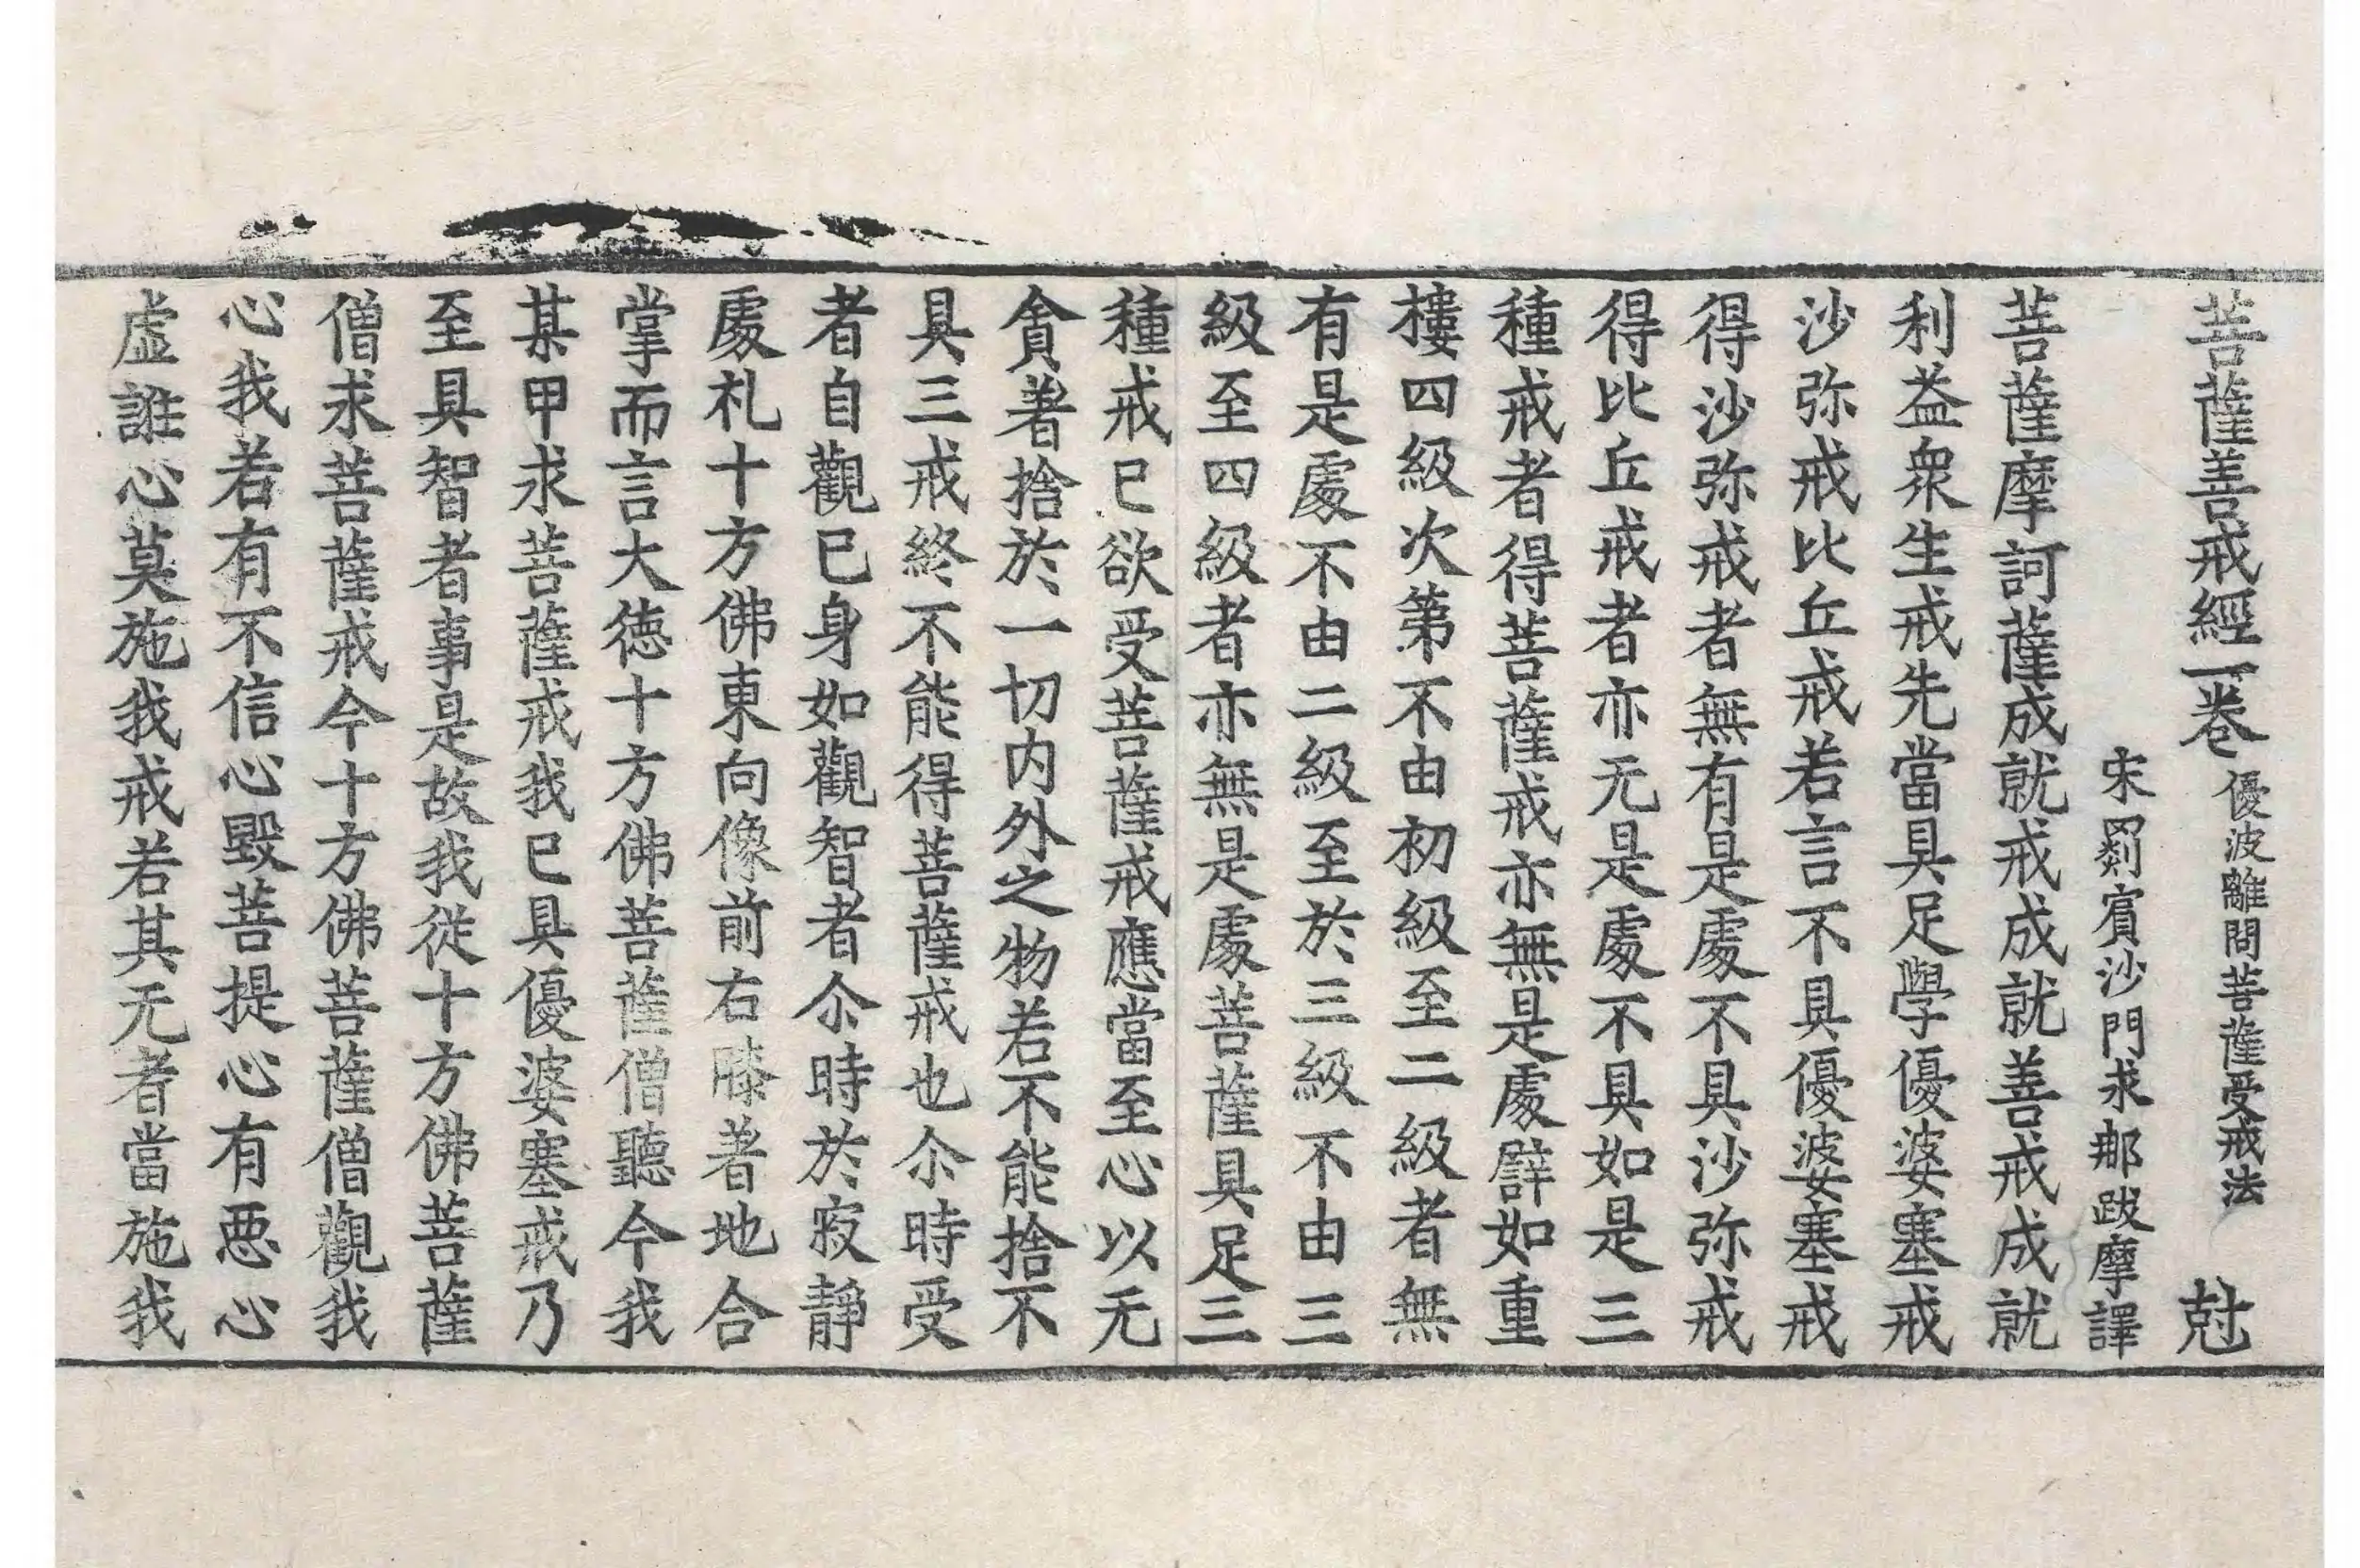 菩薩善戒經一卷 優波離問菩薩受戒法 尅
宋罽賓沙門求那跋摩譯
菩薩摩訶薩成就戒成就善戒成就
利益衆生戒先當具足學優婆塞戒
沙弥戒比丘戒若言不具優婆塞戒
得沙弥戒者無有是處不具沙弥戒
得比丘戒者亦无是處不具如是三
種戒者得菩薩戒亦無是處譬如重
樓四級次第不由初級至二級者無
有是處不由二級至於三級不由三
級至四級者亦無是處菩薩具足三
種戒已欲受菩薩戒應當至心以无
貪著捨於一切内外之物若不能捨不
具三戒終不能得菩薩戒也尒時受
者自觀已身如觀智者尒時於寂静
處礼十方佛東向像前右膝著地合
掌而言大德十方佛菩薩僧聽今我
某甲求菩薩戒我已具優婆塞戒乃
至具智者事是故我從十方佛菩薩
僧求菩薩戒今十方佛菩薩僧觀我
心我若有不信心毀菩提心有惡心
虚誰心莫施我戒若其无者當施我